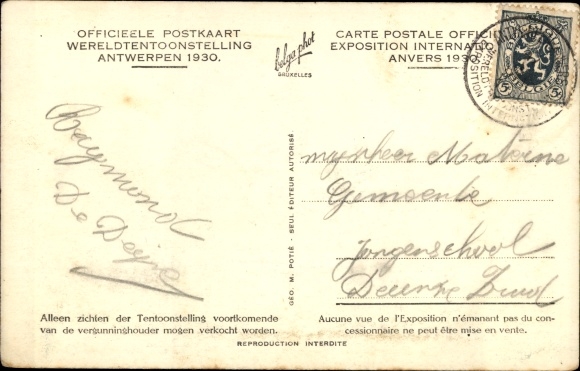 OFFICIEELE POSTKAART
WERELDTENTOONSTELLING
ANTWERPEN 1930.
belga phot
BRUXELLES
CARTE POSTALE OFFICI
EXPOSITION INTERNAT
ANVERS 193
BELGIE
3
3
Raymond
De
GÉO. M. POTIÉ - SEUL ÉDITEUR AUTORISÉ
mynheer Materne
Gemeente
Jongenschool
Deurne Zuid
Alleen zichten der Tentoonstelling voortkomende
van de vergunninghouder mogen verkocht worden.
Aucune vue de l'Exposition n'émanant pas du con-
cessionnaire ne peut être mise en vente.
REPRODUCTION INTERDITE